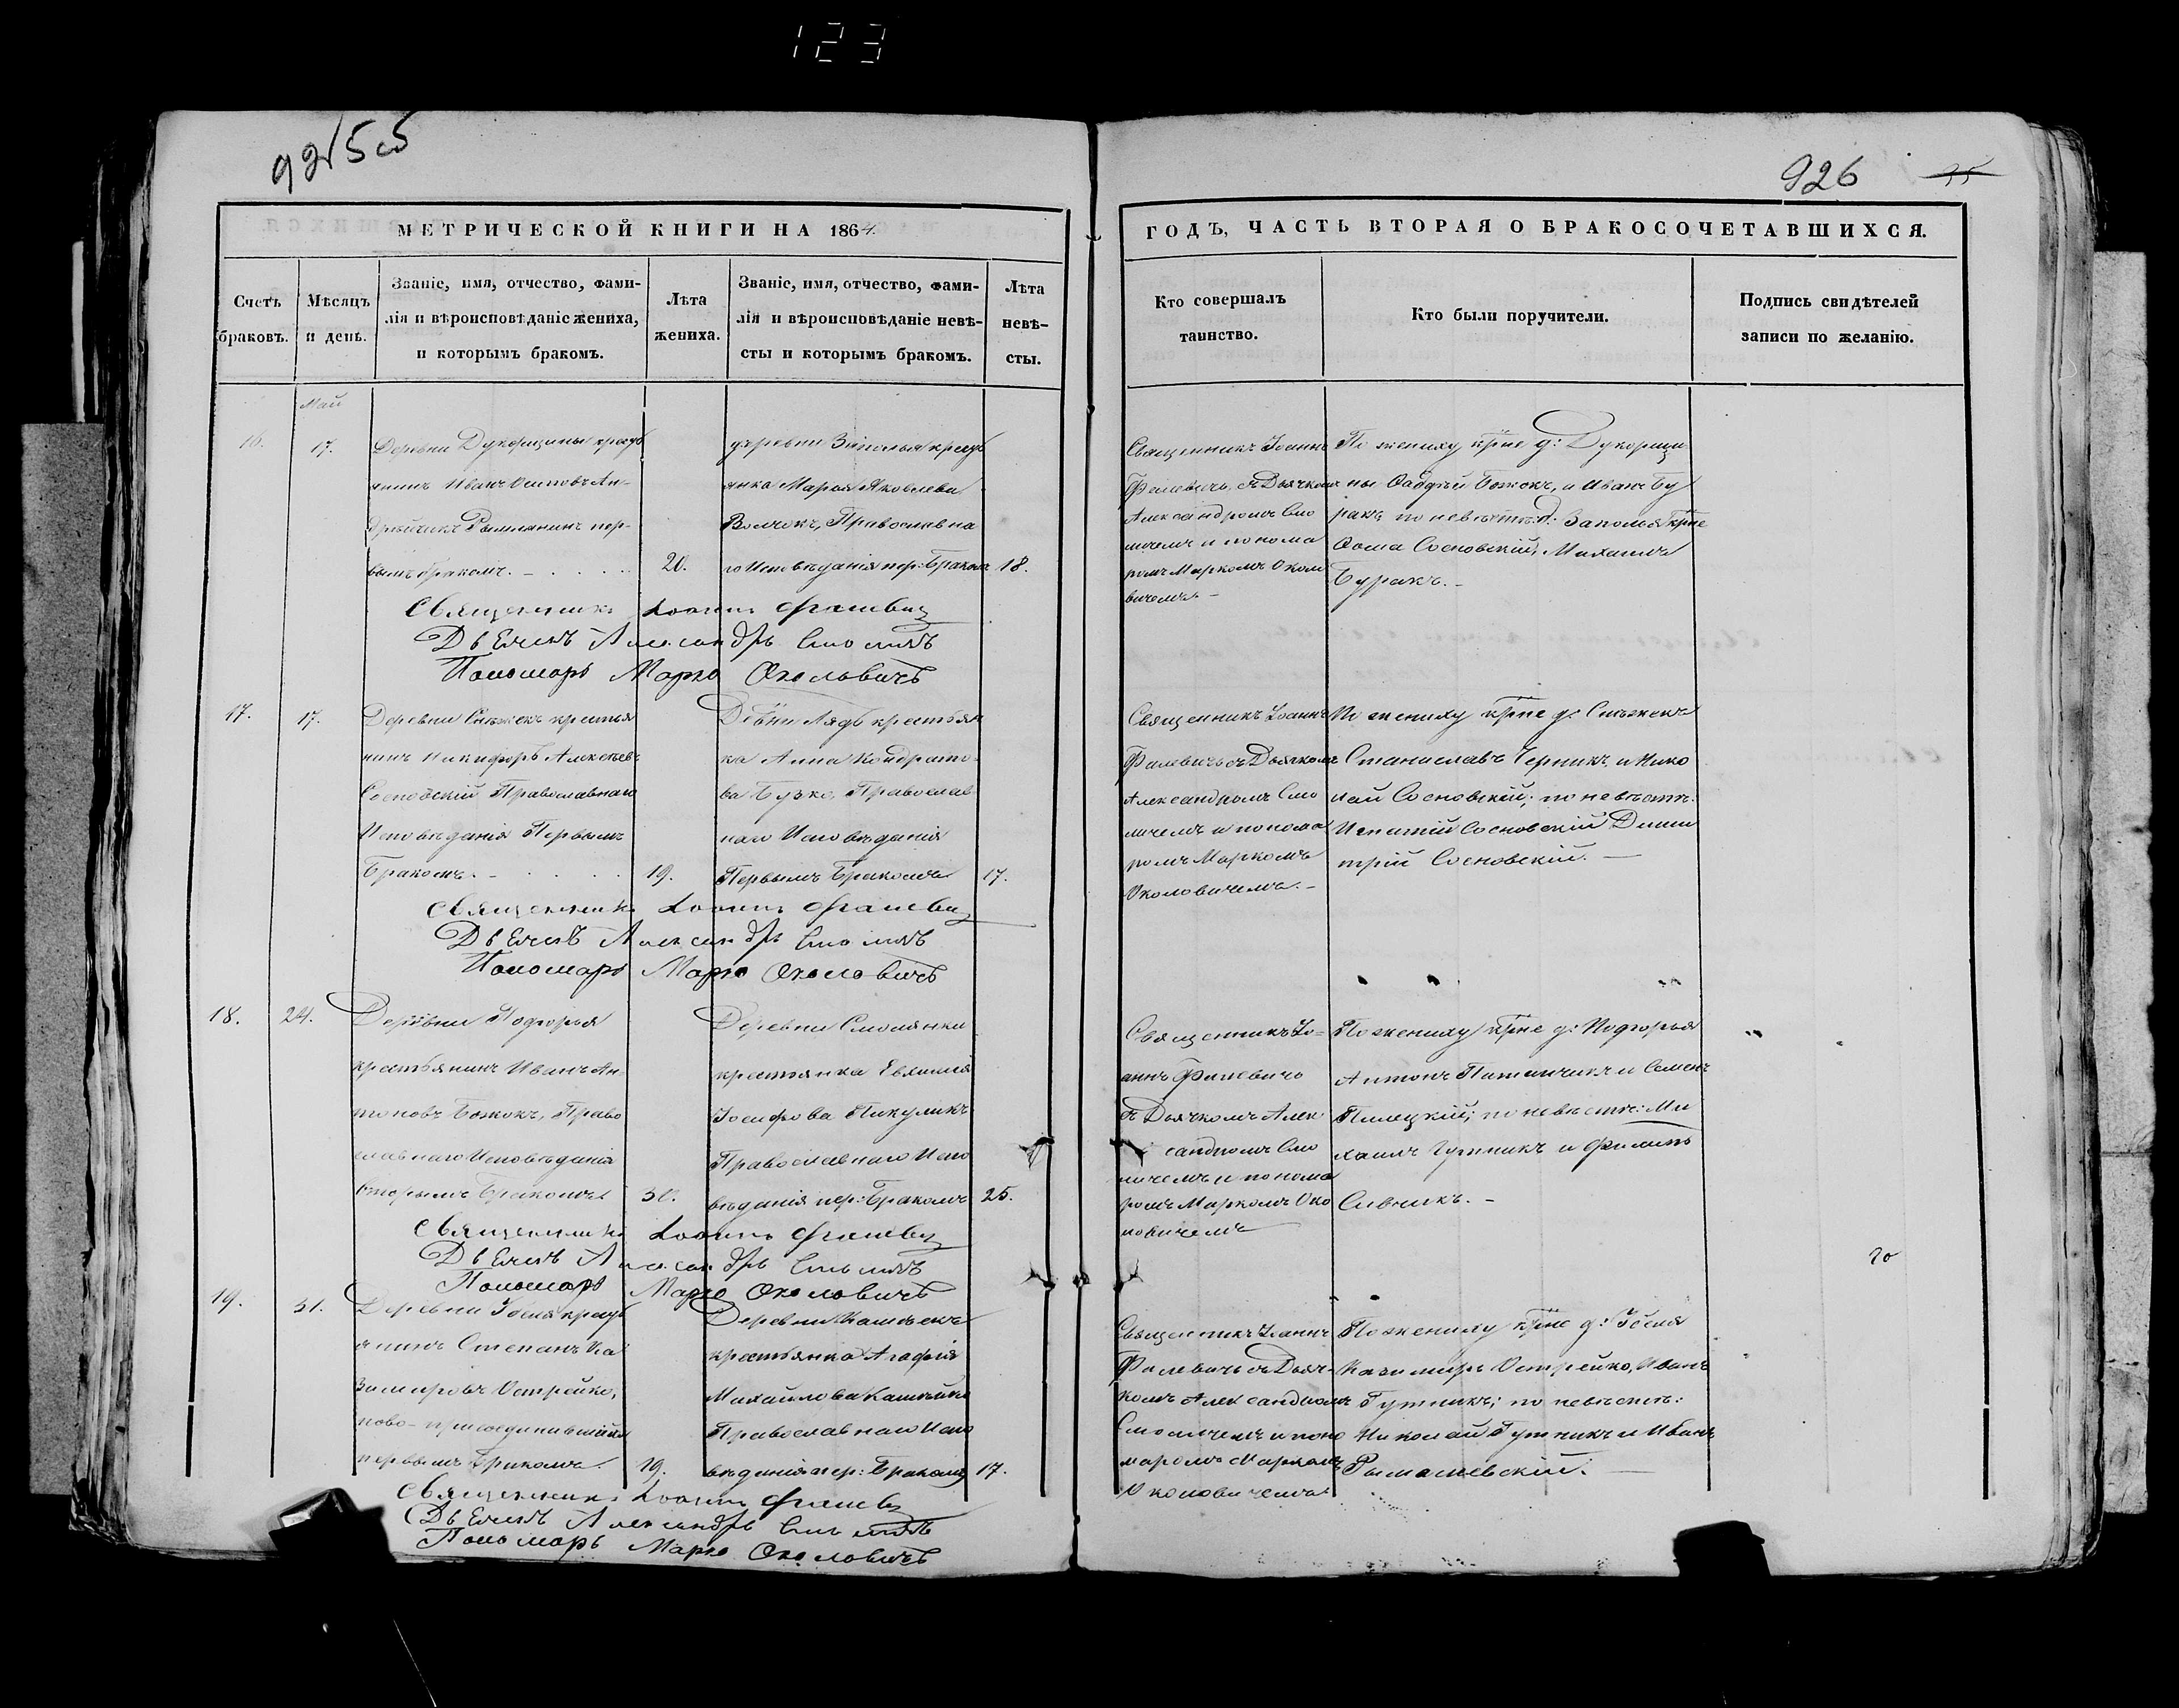 123
925 об
926
35
МЕТРИЧЕСКОЙ КНИГИ НА 1864.
Счетъ браковъ.
Мѣсяцъ и день.
Званіе, имя, отчество, фами-
лія и вѣроисповѣданіе жениха,
и которымъ бракомъ.
Лѣта
жениха.
Званіе, имя, отчество, фами-
лія и вѣроисповѣданіе невѣ-
сты и которымъ бракомъ.
Лѣта
невѣ-
сты.
ГОДЪ, ЧАСТЬ ВТОРАЯ О БРАКОСОЧЕТАВШИХСЯ.
Кто совершалъ
таинство.
Кто были поручители.
Подпись свидѣтелей
записи по желанію.
Май
16.
17.
Деревни Дукорщины кресть
янинъ Иванъ Осиповъ Ан-
Римлянинъ пер-
вымъ бракомъ. -
20.
деревни Заполья кресть
янка Марья Яковлева
Волчокъ, Православна
го Исповѣданія пер: Бракомъ
18.
Священникъ Іоаннъ
Филевичъ съ Дьячкомъ
Александромъ Смо
личемъ и понома
ремъ Маркомъ Около
вичемъ. -
По жениху кр̃не д: Дукорщи
ны Фаддей Божокъ, и Иванъ Бу
ракъ, по невѣстѣ: д: Заполья кр̃не
Фома Сосновскій, Михаилъ
Буракъ. -
Священникъ Іоаннъ Филевичъ
Дьячекъ Александръ Смоличъ
Пономарь Марко Околовичъ
17.
17.
Деревни Снѣжекъ крестья
нинъ Никифоръ Алексѣевъ
Сосновскій Православнаго
Исповѣданія Первымъ
Бракомъ. -
19.
Дев̃ни Лядъ крестьян
ка Анна Кондрато-
ва Бузко. Православ
наго Исповѣданія
Первымъ Бракомъ
17.
Священникъ Іоаннъ
Филевичъ съ Дьячкомъ
Александромъ Смо
личемъ и понома
ромъ Маркомъ
Околовичемъ. -
По жениху кр̃не д: Снѣжекъ
Станиславъ Черникъ, и Нико
лай Сосновскій; по невѣстѣ:
Игнатій Сосновскій Дими
трій Сосновскій. -
Священникъ Іоаннъ Филевичъ
Дьячекъ Александръ Смоличъ
Пономарь Марко Околовичъ
18.
24.
Деревни Подгорья
крестьянинъ Иванъ Ан-
тоновъ Божокъ, Право
славнаго Исповѣданія
вторымъ Бракомъ
30.
Деревни Смолянки
крестьянка Евфимія
Іосифова Пикуликъ
Православнаго Испо
вѣданія пер: Бракомъ
25.
Священникъ Іо-
аннъ Филевичъ
съ Дьячкомъ Алек
сандромъ Смо
личемъ и понома
ромъ Маркомъ Око
ловичемъ
По жениху кр̃не д: Подгорья
Антонъ и Семенъ
Пилецкій; по невѣстѣ: Ми
хаилъ Гутникъ и Филипъ
Сивчикъ. -
Священникъ Іоаннъ Филевичъ
Дьячекъ Александръ Смоличъ
Пономарь Марко Околовичъ
19.
31.
Деревни кресть
янинъ Степанъ Ка
зимировъ Острейко,
ново-присоединившійся
первымъ Бракомъ
19.
Деревни
крестьянка Агафія
Михайлова
Православнаго Испо
вѣданія пер: Бракомъ
17.
Священникъ Іоаннъ
Филевичъ съ Дьяч-
комъ Александромъ
Смоличемъ и поно
маромъ Маркомъ
Околовичемъ
По жениху кр̃не д:
Казимиръ Острейко, Иванъ
Гутникъ; по невѣстѣ:
Николай Гутникъ и Иванъ
Рымашевскій. -
Священникъ Іоаннъ Филевичъ
Дьячекъ Александръ Смоличъ
Пономарь Марко Околовичъ